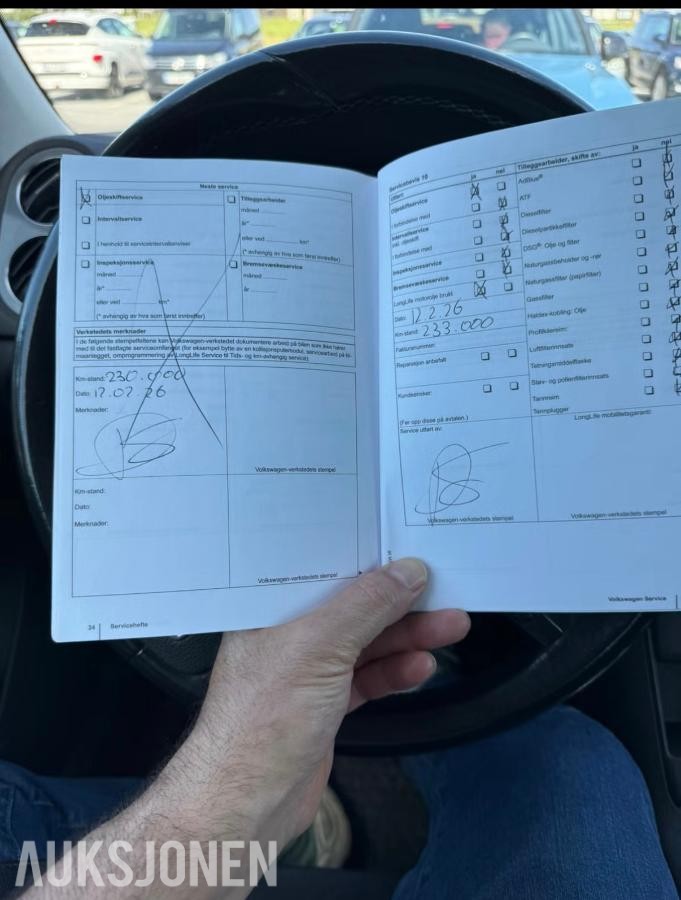 Neste service
Oljeskiftservice
Tilleggsarbeider
måned
år*
Intervallservice
eller ved km*
I henhold til serviceintervallviser
(* avhengig av hva som først inntreffer)
Inspeksjonsservice
Bremsevæskeservice
måned
måned
år*
år
eller ved km*
(* avhengig av hva som først inntreffer)
Verkstedets merknader
I de følgende stempelfeltene kan Volkswagen-verkstedet dokumentere arbeid på bilen som ikke hører
med til det fastlagte serviceomfanget (for eksempel bytte av en kollisjonsputemodul, servicearbeid på kli-
maanlegget, omprogrammering av LongLife Service til Tids- og km-avhengig service).
Km-stand: 230.000
Dato: 12.02.26
Merknader:
Volkswagen-verkstedets stempel
Km-stand:
Dato:
Merknader:
Volkswagen-verkstedets stempel
34 Servicehefte
Servicebevis 10
Utført: ja nei
Oljeskiftservice
I forbindelse med
Intervallservice
inkl. oljeskift
I forbindelse med
Inspeksjonsservice
Bremsevæskeservice
LongLife motorolje brukt
Dato: 12.2.26
Km-stand: 233.000
Fakturanummer:
Reparasjon anbefalt
Kundeønsker:
(Før opp disse på avtalen.)
Service utført av:
Volkswagen-verkstedets stempel
Tilleggsarbeider, skifte av: ja nei
AdBlue®
ATF
Dieselfilter
Dieselpartikkelfilter
DSG®: Olje og filter
Naturgassbeholder og -rør
Naturgassfilter (papirfilter)
Gassfilter
Haldex-kobling: Olje
Profilkilereim:
Luftfilterinnsats
Tetningsmiddelflaske
Støv- og pollenfilterinnsats
Tannreim
Tennplugger
LongLife mobilitetsgaranti:
Volkswagen-verkstedets stempel
Volkswagen Service
AUKSJONEN